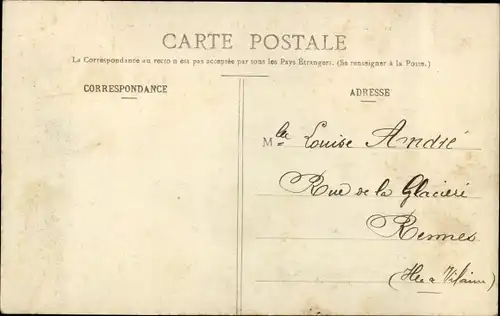 CARTE POSTALE
La Correspondance au recto n'est pas acceptée par tous les Pays Étrangers. (Se renseigner à la Poste.)
CORRESPONDANCE
ADRESSE
Mlle Louise André
Rue de la Glacière
Rennes
(Ille & Vilaine)